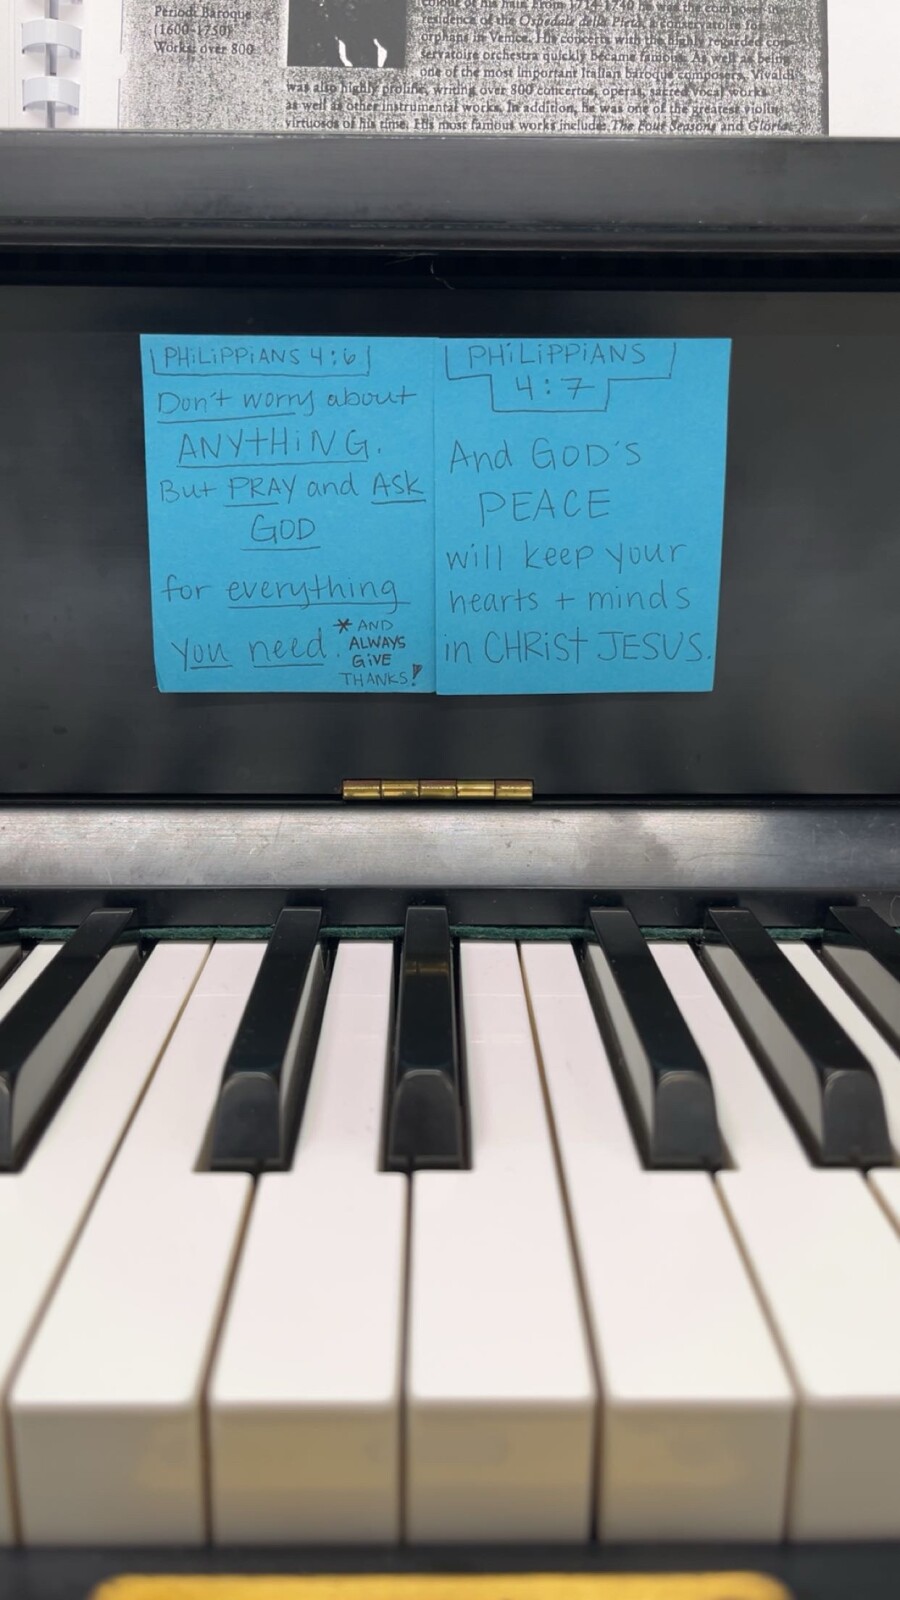 Period: Baroque
(1600-1750)
Works: over 800
colour of his hair. From 1714-1740 he was the composer in
residence of the Ospedale della Pietà, a conservatoire for
orphans in Venice. His concerts with the highly regarded con-
servatoire orchestra quickly became famous. As well as being
one of the most important Italian baroque composers, Vivaldi
was also highly prolific, writing over 800 concertos, operas, sacred vocal works
as well as other instrumental works. In addition, he was one of the greatest violin
virtuosos of his time. His most famous works include: The Four Seasons and Gloria.
PHiLiPPiANS 4:6
Don't worry about
ANYtHiNG.
But PRAY and Ask
GOD
for everything
you need.
* AND
ALWAYS
GiVE
THANKS!
PHiLiPPiANS
4:7
And GOD'S
PEACE
will keep your
hearts + minds
in CHRiSt JESUS.